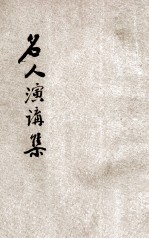 名人演讲集